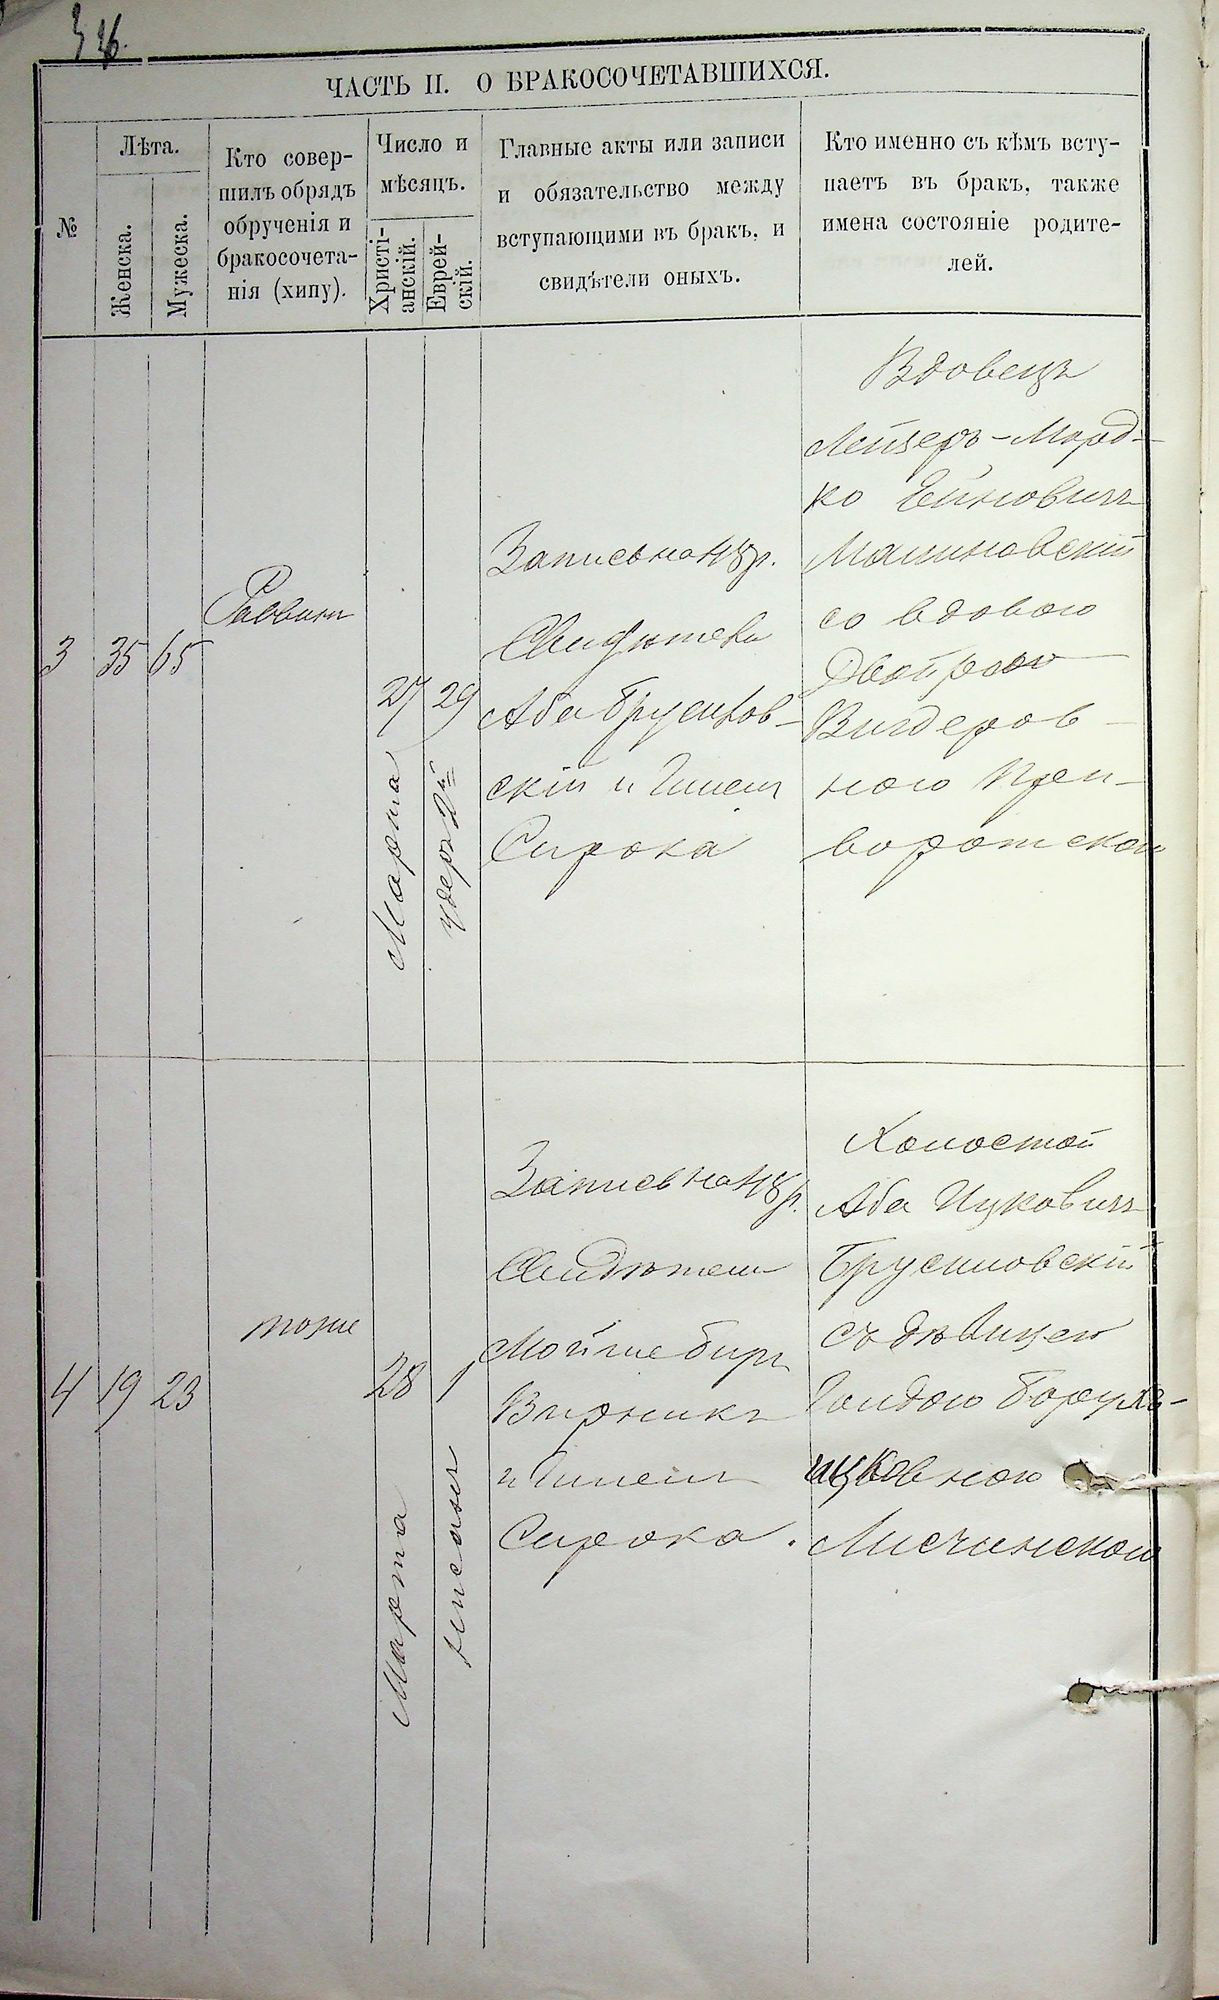 ЧАСТЬ II. О БРАКОСОЧЕТАВШИХСЯ.
№
Лѣта.
Женска.
Мужеска.
Кто совер-
шилъ обрядъ
обрученія и
бракосочета-
нія (хипу).
Число и
мѣсяцъ.
Христі-
анскій.
Еврей-
скій.
Главные акты или записи
и обязательство между
вступающими въ бракъ, и
свидѣтели оныхъ.
Кто именно съ кѣмъ всту-
паетъ въ бракъ, также
имена состояніе родите-
лей.
3
35
65
Раввинъ
27
Марта
29
Запись на 48 р.
Свидѣтели
Аба Брусилов-
скій и
Сирока
Вдовецъ
Лейзеръ-Морд-
ко
Малиновскій
со вдовою
Двойрою
Вигдеров-
ною
воротскою
4
19
23
тоже
28
Марта
1
нисанъ
Запись на 48 р.
Свидѣтели
Мойше Беръ
Вирникъ
и
Сирока.
Холостой
Аба Ицковичъ
Брусиловскій
съ дѣвицею
Голдою Борухъ-
ицковною
Лисчинскою